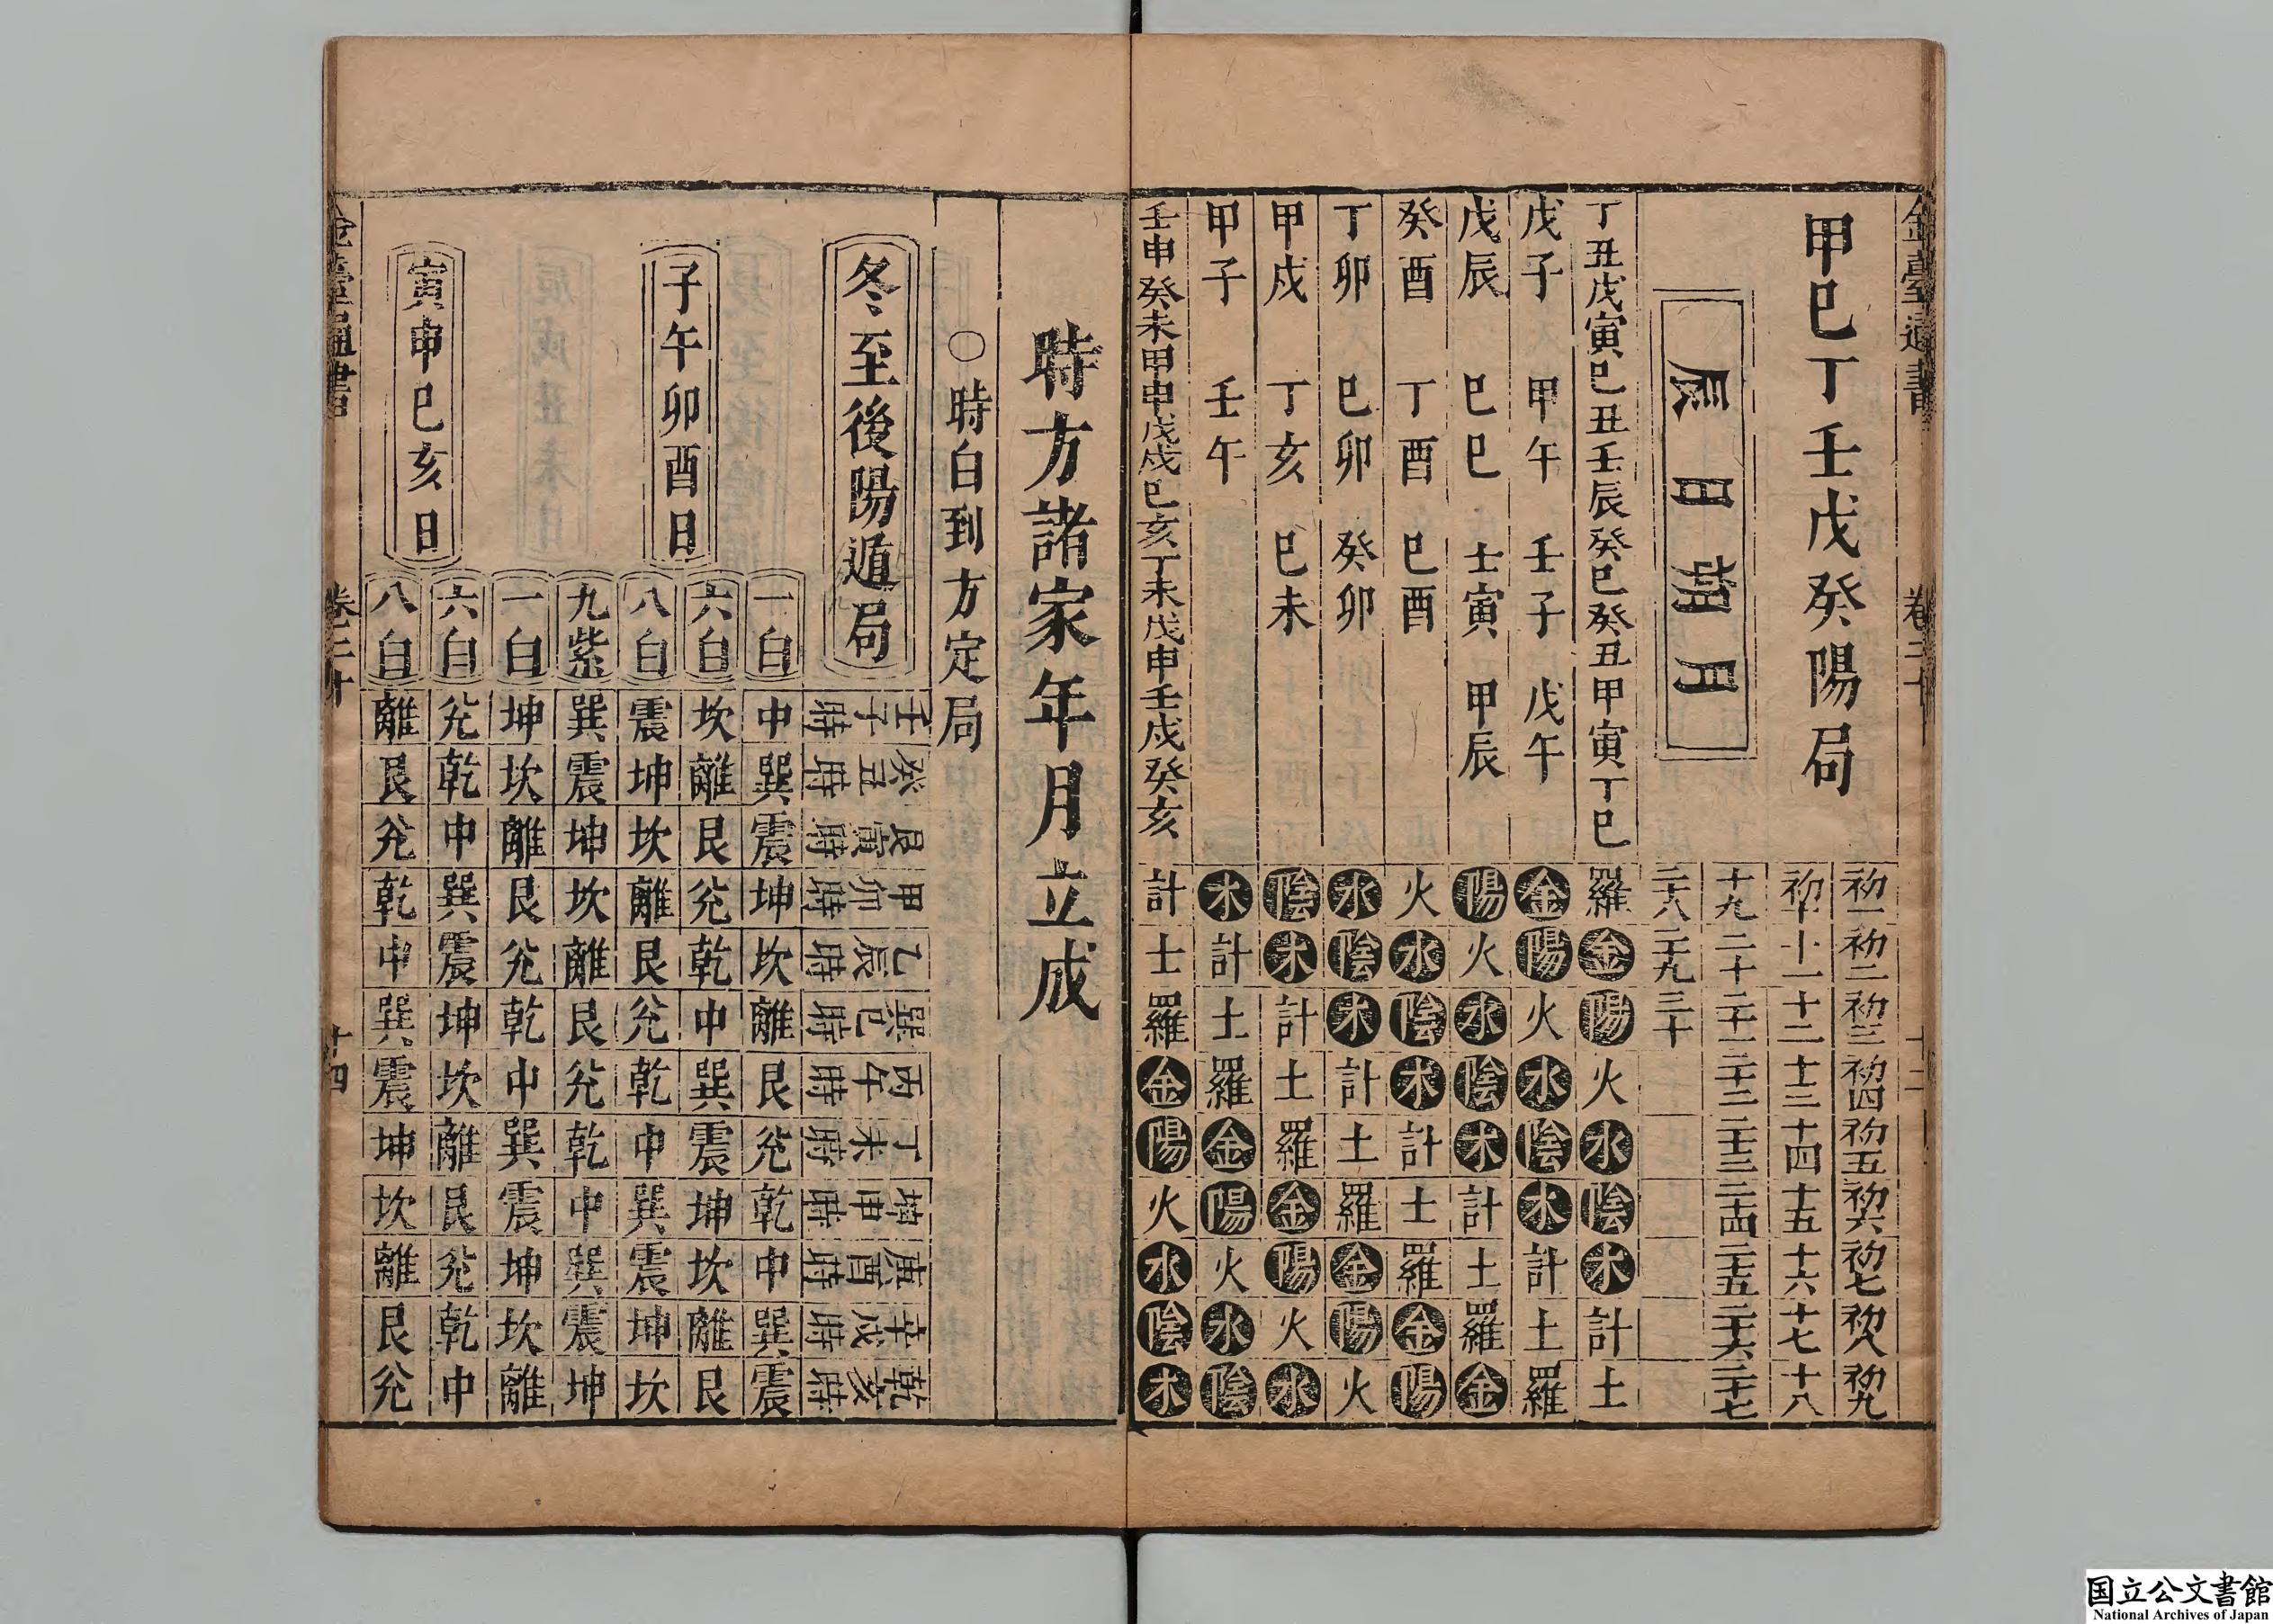 金臺通書 卷二十 十三
甲巳丁壬戊癸陽局
初一 初二 初三 初四 初五 初六 初七 初八 初九
初十 十一 十二 十三 十四 十五 十六 十七 十八
月朔日辰
十九 二十 二十一 二十二 二十三 二十四 二十五 二十六 二十七
二十八 二十九 三十
丁丑戊寅巳丑壬辰癸巳癸丑甲寅丁巳 羅 金 陽 火 水 陰 木 計 土
戊子 甲午 壬子 戊午 金 陽 火 水 陰 木 計 土 羅
戊辰 巳巳 壬寅 甲辰 陽 火 水 陰 木 計 土 羅 金
癸酉 丁酉 巳酉 火 水 陰 木 計 土 羅 金 陽
丁卯 巳卯 癸卯 水 陰 木 計 土 羅 金 陽 火
甲戌 丁亥 巳未 陰 木 計 土 羅 金 陽 火 水
甲子 壬午 木 計 土 羅 金 陽 火 水 陰
壬申癸未甲申戊戌巳亥丁未戊申壬戌癸亥 計 土 羅 金 陽 火 水 陰 木
時方諸家年月立成
○時白到方定局
冬至後陽遁局
壬子時 癸丑時 艮寅時 甲卯時 乙辰時 巽巳時 丙午時 丁未時 坤申時 庚酉時 辛戌時 乾亥時
子午卯酉日
一白 中 巽 震 坤 坎 離 艮 兌 乾 中 巽 震
六白 坎 離 艮 兌 乾 中 巽 震 坤 坎 離 艮
八白 震 坤 坎 離 艮 兌 乾 中 巽 震 坤 坎
九紫 巽 震 坤 坎 離 艮 兌 乾 中 巽 震 坤
寅申巳亥日
一白 坤 坎 離 艮 兌 乾 中 巽 震 坤 坎 離
六白 兌 乾 中 巽 震 坤 坎 離 艮 兌 乾 中
八白 離 艮 兌 乾 中 巽 震 坤 坎 離 艮 兌
金臺通書 卷二十 十四
国立公文書館
National Archives of Japan